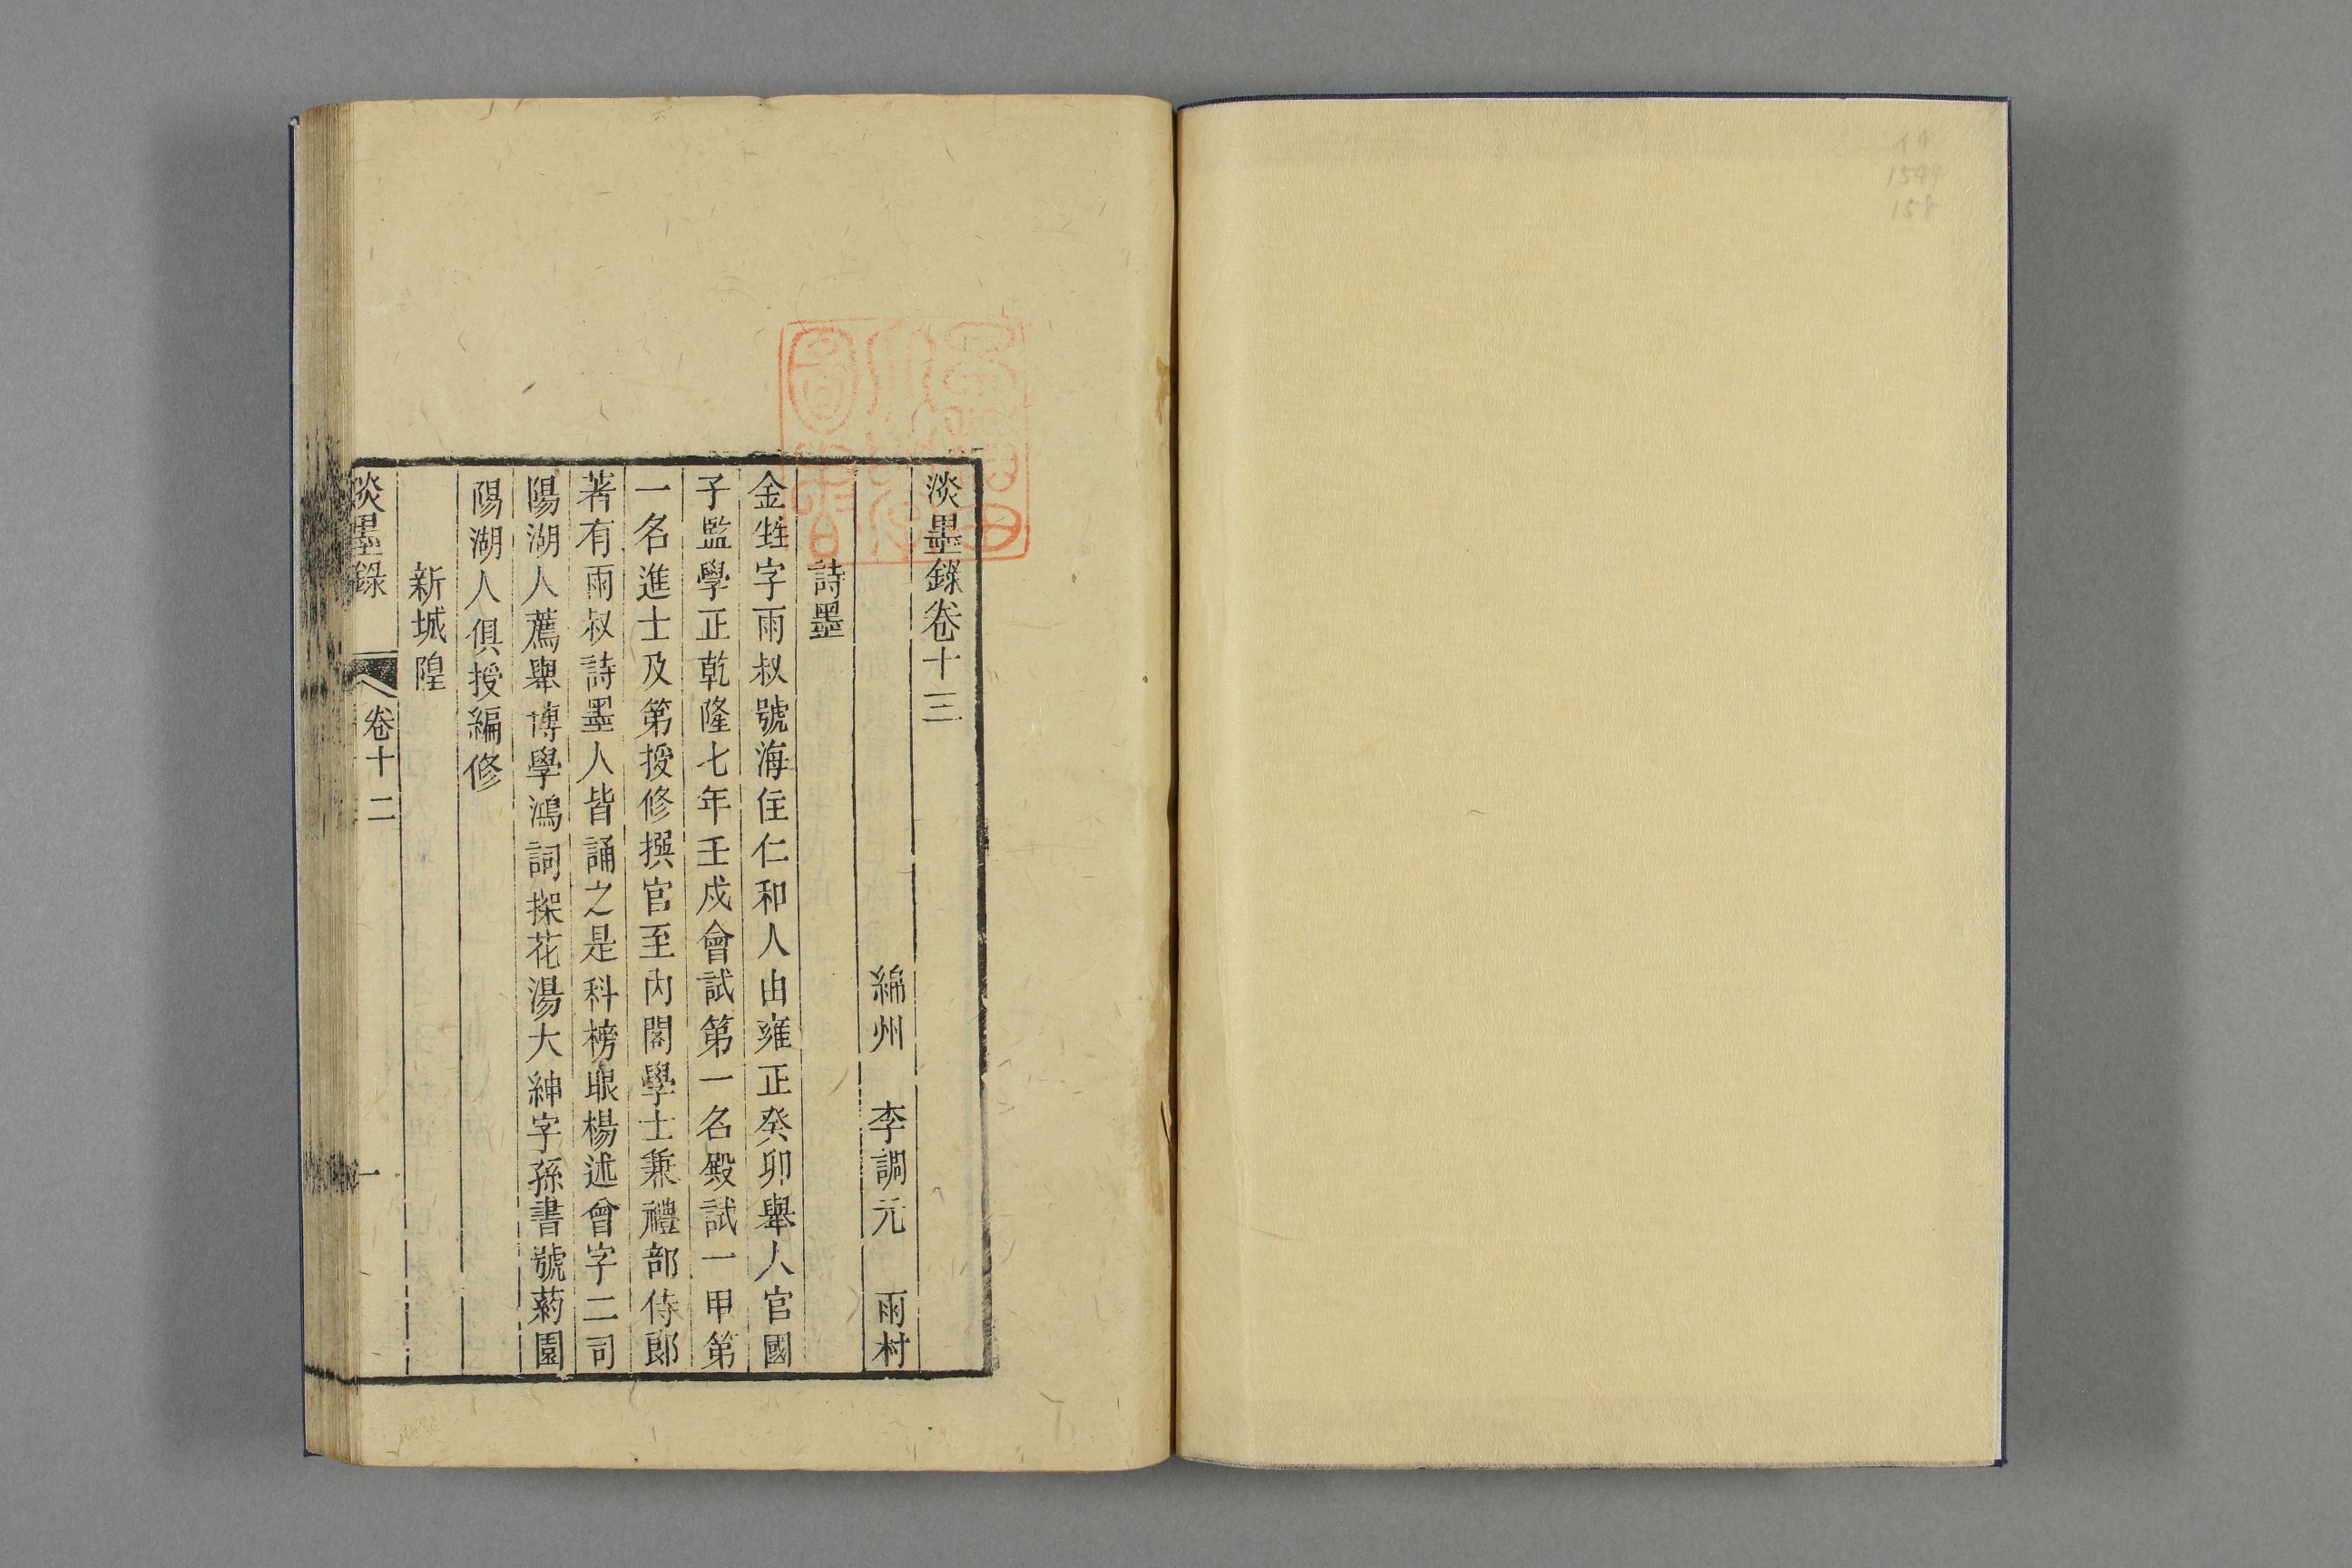 淡墨錄卷十三
綿州　李調元　雨村
詩墨
金甡字雨叔號海住仁和人由雍正癸卯舉人官國
子監學正乾隆七年壬戌會試第一名殿試一甲第
一名進士及第授修撰官至内閣學士兼禮部侍郎
著有雨叔詩墨人皆誦之是科榜眼楊述曾字二司
陽湖人薦舉博學鴻詞探花湯大紳字孫書號葯園
陽湖人俱授編修
新城隍
淡墨錄　卷十二　一
19
1549
158